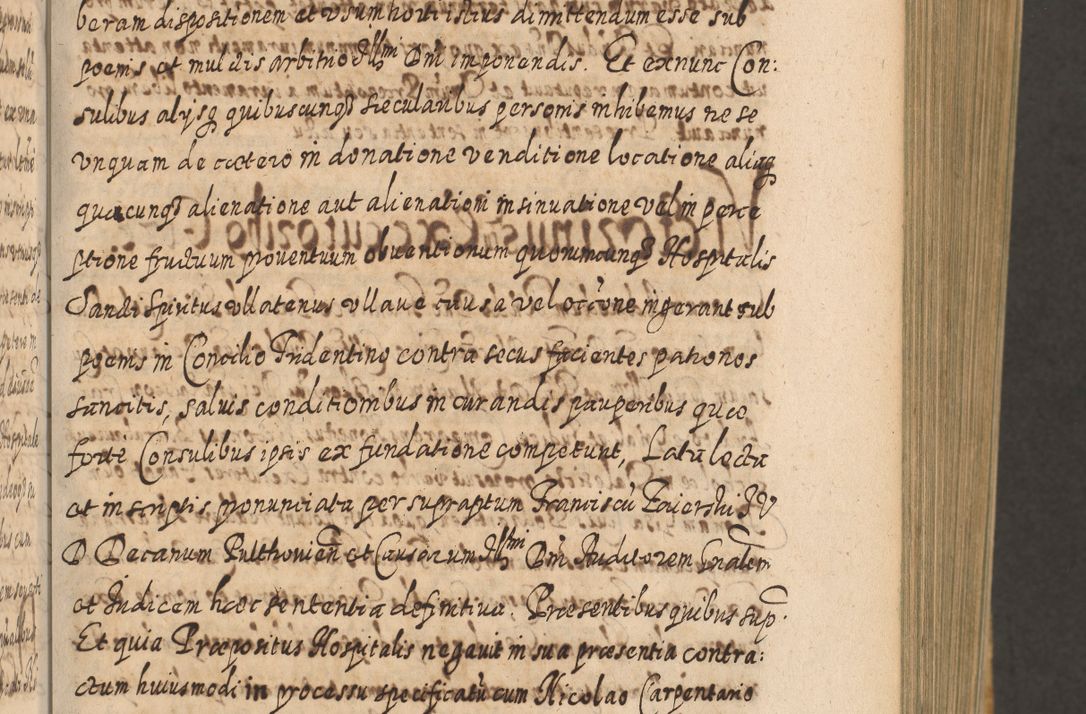 beram dispositionem et usum horti istius dimittendum esse sub
poenis et mulctis arbitrio Illmi Dni imponendis. Et ex nunc Con:
sulibus alijsq quibuscunq saecularibus personis inhibemus ne se
vnquam de caetero in donatione venditione locatione aliaq
quacunq alienatione aut alienationi insinuatione vel in perce
ptione fructuum proventuum obventionum quorumcunq Hospitalis
Sancti Spiritus vllatenus vllave causa vel occone ingerant sub
poenis in Concilio Tridentino contra secus facientes patronos
sancitis, salvis conditionibus in curandis pauperibus quae
forte Consulibus ipsis ex fundatione competunt, Lata lecta
et in scriptis pronunciata per supraptum Franciscu Zaierski JV
D Decanum Pulthovien et Causarum Illmi Dni Auditorem Gnalem
et Judicem haec sententia definitiva. Praesentibus quibus sup.
Et quia Praepositus Hospitalis negavit in sua praesentia contra:
ctum huiusmodi in processu specificatu cum Nicolao Carpentario